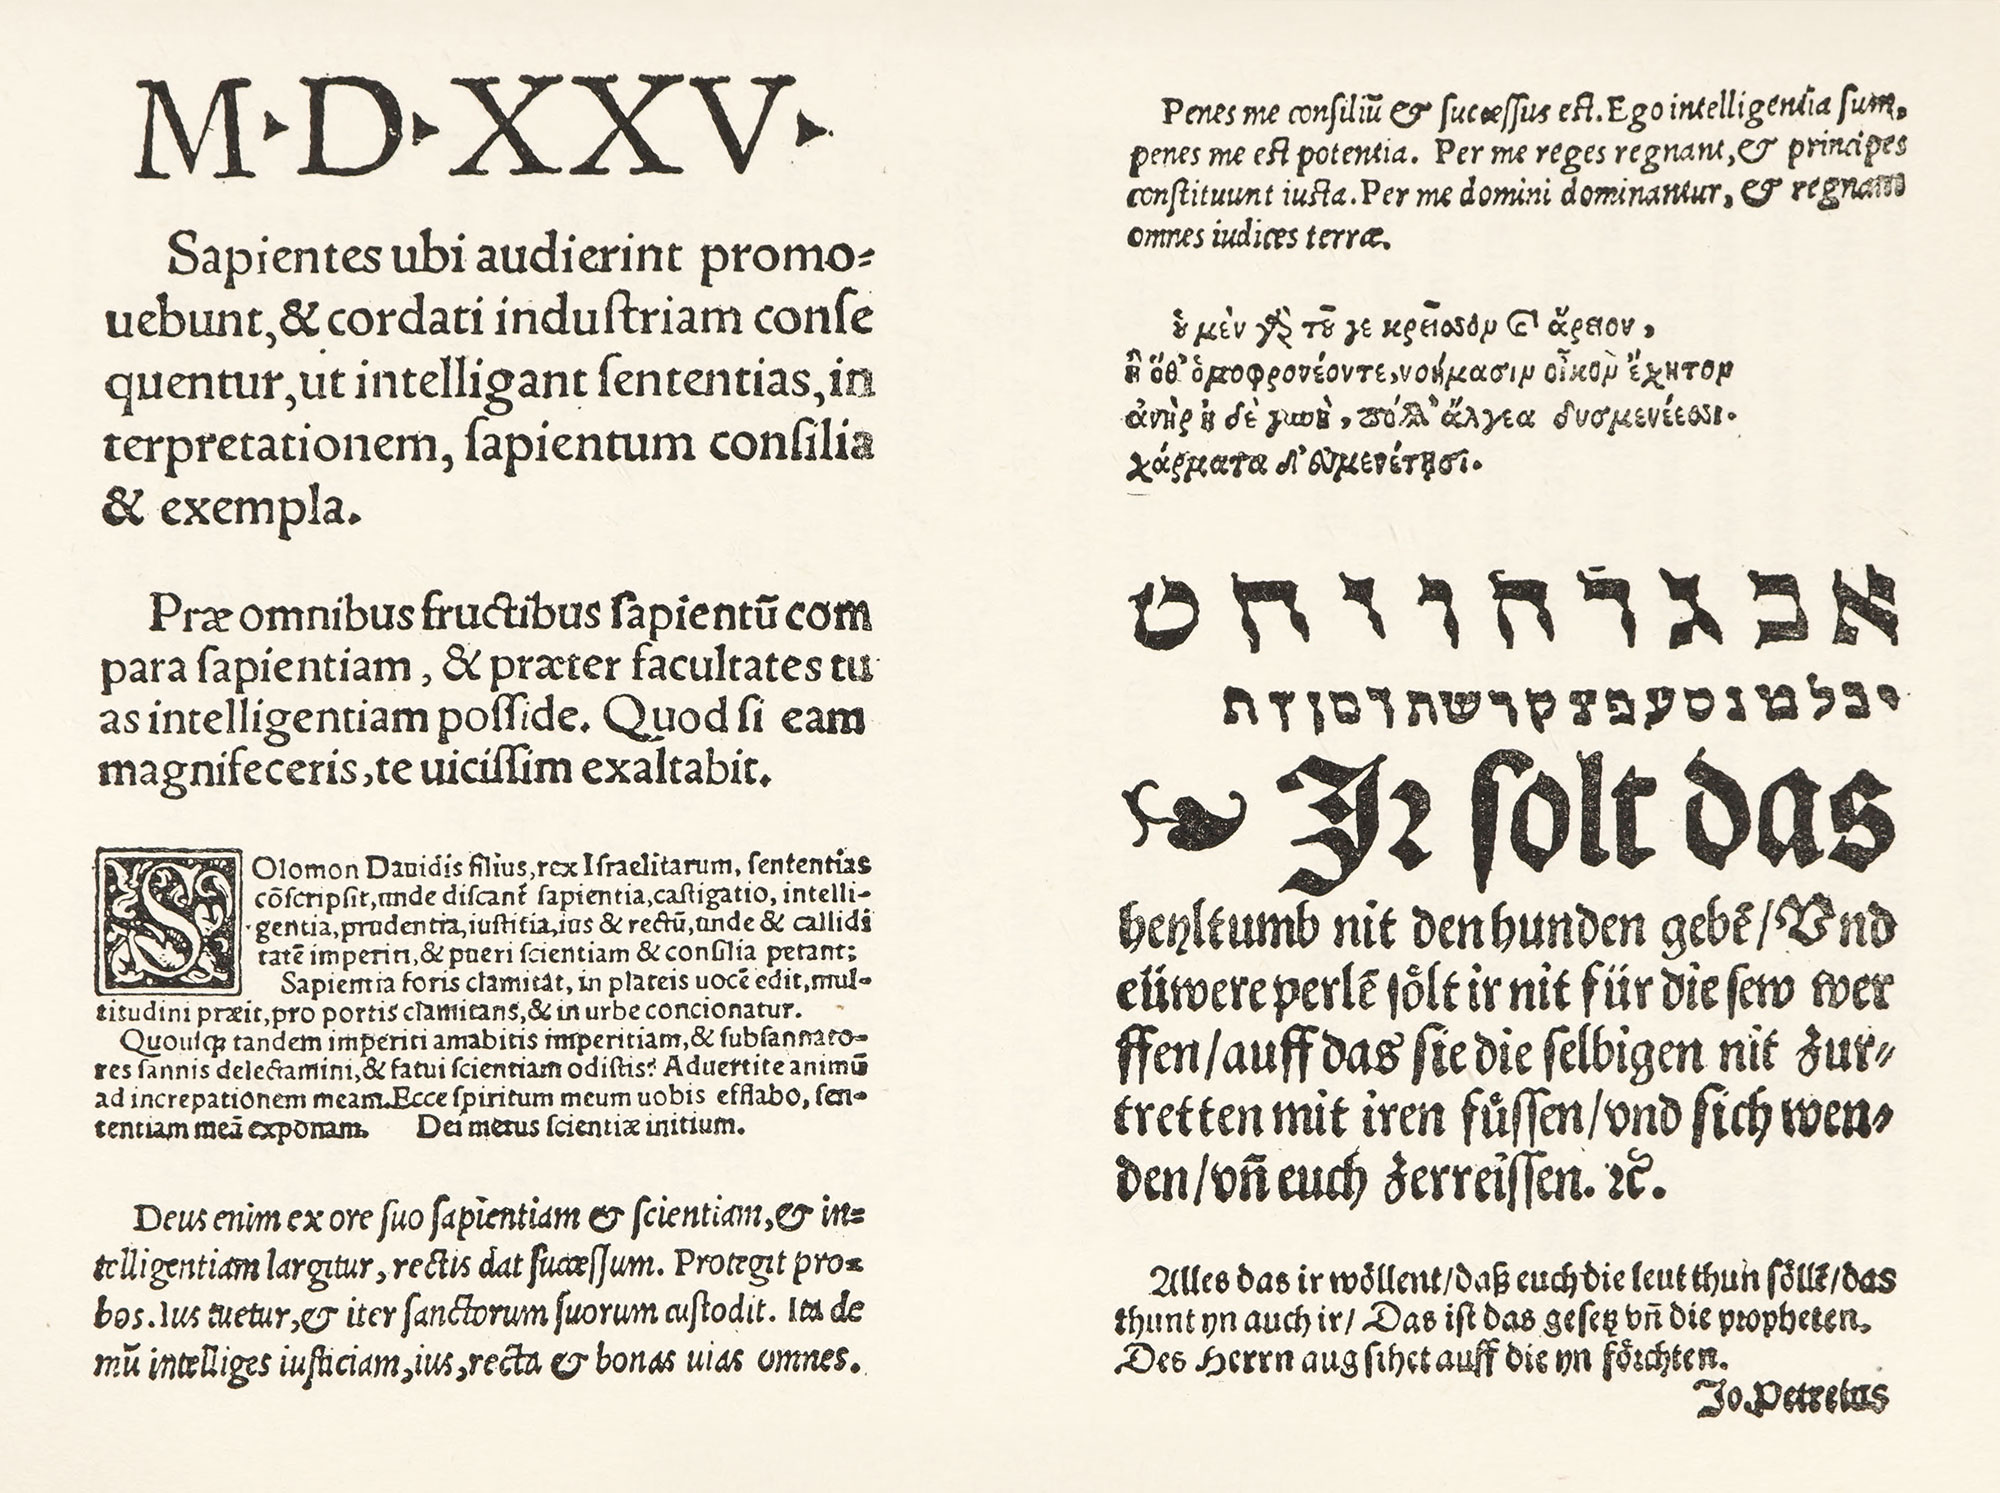 M·D·XXV·
Sapientes ubi audierint promo⸗
uebunt,& cordati induſtriam conſe
quentur,ut intelligant ſententias,in
terpretationem, ſapientum conſilia
& exempla.
Præ omnibus fructibus ſapientū com
para ſapientiam, & præter facultates tu
as intelligentiam poſſide. Quod ſi eam
magnifeceris,te uiciſſim exaltabit.
SOlomon Dauidis filius,rex Iſraelitarum, ſententias
cōſcripſit,unde diſcant ſapientia,caſtigatio, intelli-
gentia,prudentia,iuſtitia,ius & rectū,unde & callidi
tatē imperiti,& pueri ſcientiam & conſilia petant;
Sapientia foris clamitat, in plateis uocē edit,mul-
titudini præit,pro portis clamitans,& in urbe concionatur.
Quouſq; tandem imperiti amabitis imperitiam,& ſubſannato-
res ſannis delectamini,& fatui ſcientiam odiſtis? Aduertite animū
ad increpationem meam.Ecce ſpiritum meum uobis efflabo, ſen-
tentiam meā exponam. Dei metus ſcientiæ initium.
Deus enim ex ore ſuo ſapientiam & ſcientiam,& in⸗
telligentiam largitur, rectis dat ſucceſſum. Protegit pro⸗
bos.Ius tuetur,& iter ſanctorum ſuorum cuſtodit. Ita de
mū intelliges iuſticiam,ius,recta & bonas uias omnes.
Penes me conſiliū & ſucceſſus eſt.Ego intelligentia ſum,
penes me eſt potentia. Per me reges regnant,& principes
conſtituunt iuſta.Per me domini dominantur, & regnant
omnes iudices terræ.
οὐ μὲν γὰρ τοῦ γε κρεῖσσον καὶ ἄρειον,
ἢ ὅθ' ὁμοφρονέοντε,νοήμασιν οἶκον ἔχητον
ἀνὴρ ἠδὲ γυνὴ, πόλλ' ἄλγεα δυσμενέεσσι.
χάρματα δ' εὐμενέτῃσι.
אבגדהוזחט
יכלמנסעפצקרשתךםןףץ
❧ Ir ſolt das
heyltumb nit den hunden gebē/Vnd
eüwere perlē ſoͤlt ir nit für die ſew wer
ffen/auff das ſie die ſelbigen nit zur⸗
tretten mit iren fuͤſſen/vnd ſich wen⸗
den/vn̄ euch zerreiſſen. ꝛc̄.
Alles das ir woͤllent/daß euch die leut thun ſoͤllē/das
thunt yn auch ir/ Das iſt das geſetz vn̄ die propheten.
Des Herrn aug ſihet auff die yn foͤrchten.
Jo.Petreius